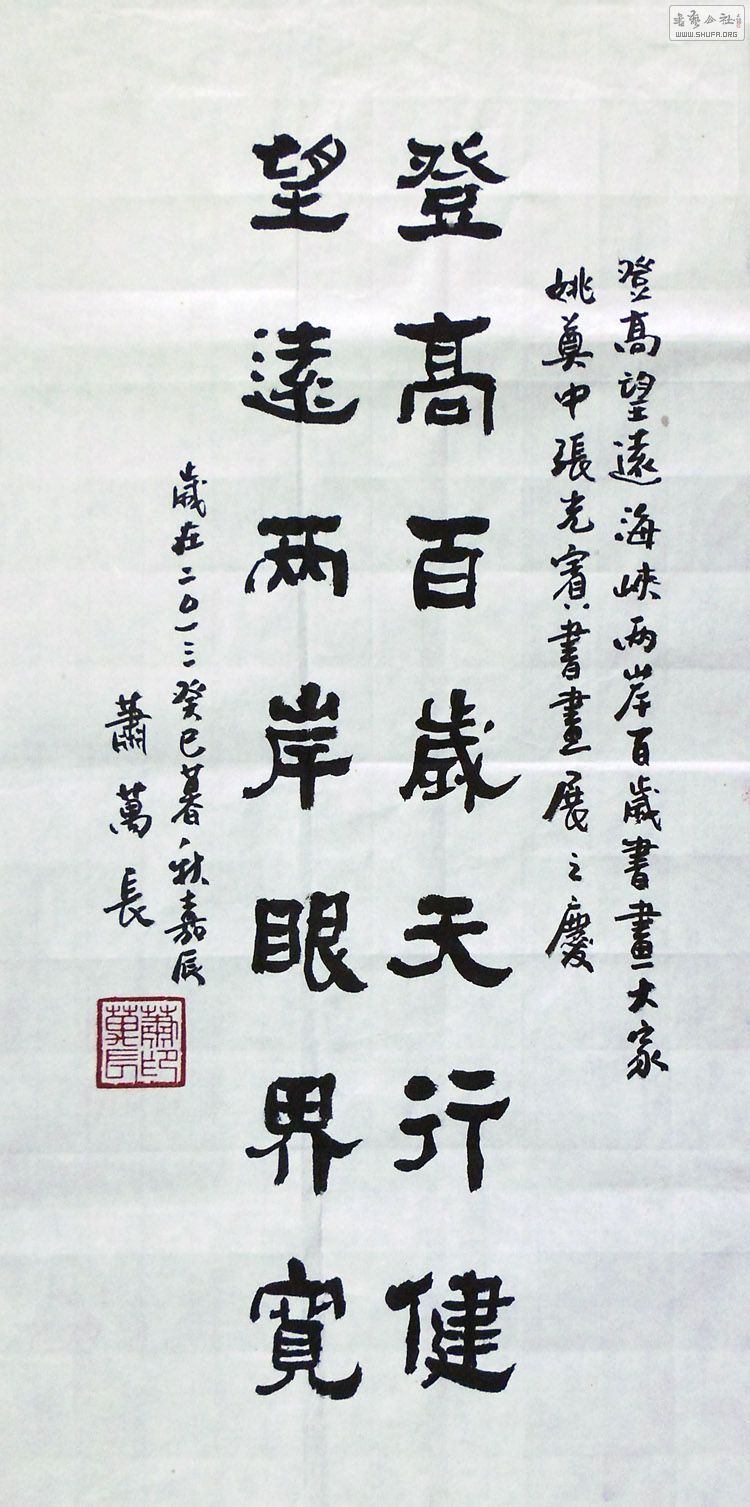 登高望遠海峽兩岸百歲書畫大家
姚奠中張光賓書畫展之慶
登高百歲天行健
望遠兩岸眼界寬
歲在二〇一三癸巳暮秋嘉辰
蕭萬長
蕭萬長印
书艺公社
WWW.SHUFA.ORG